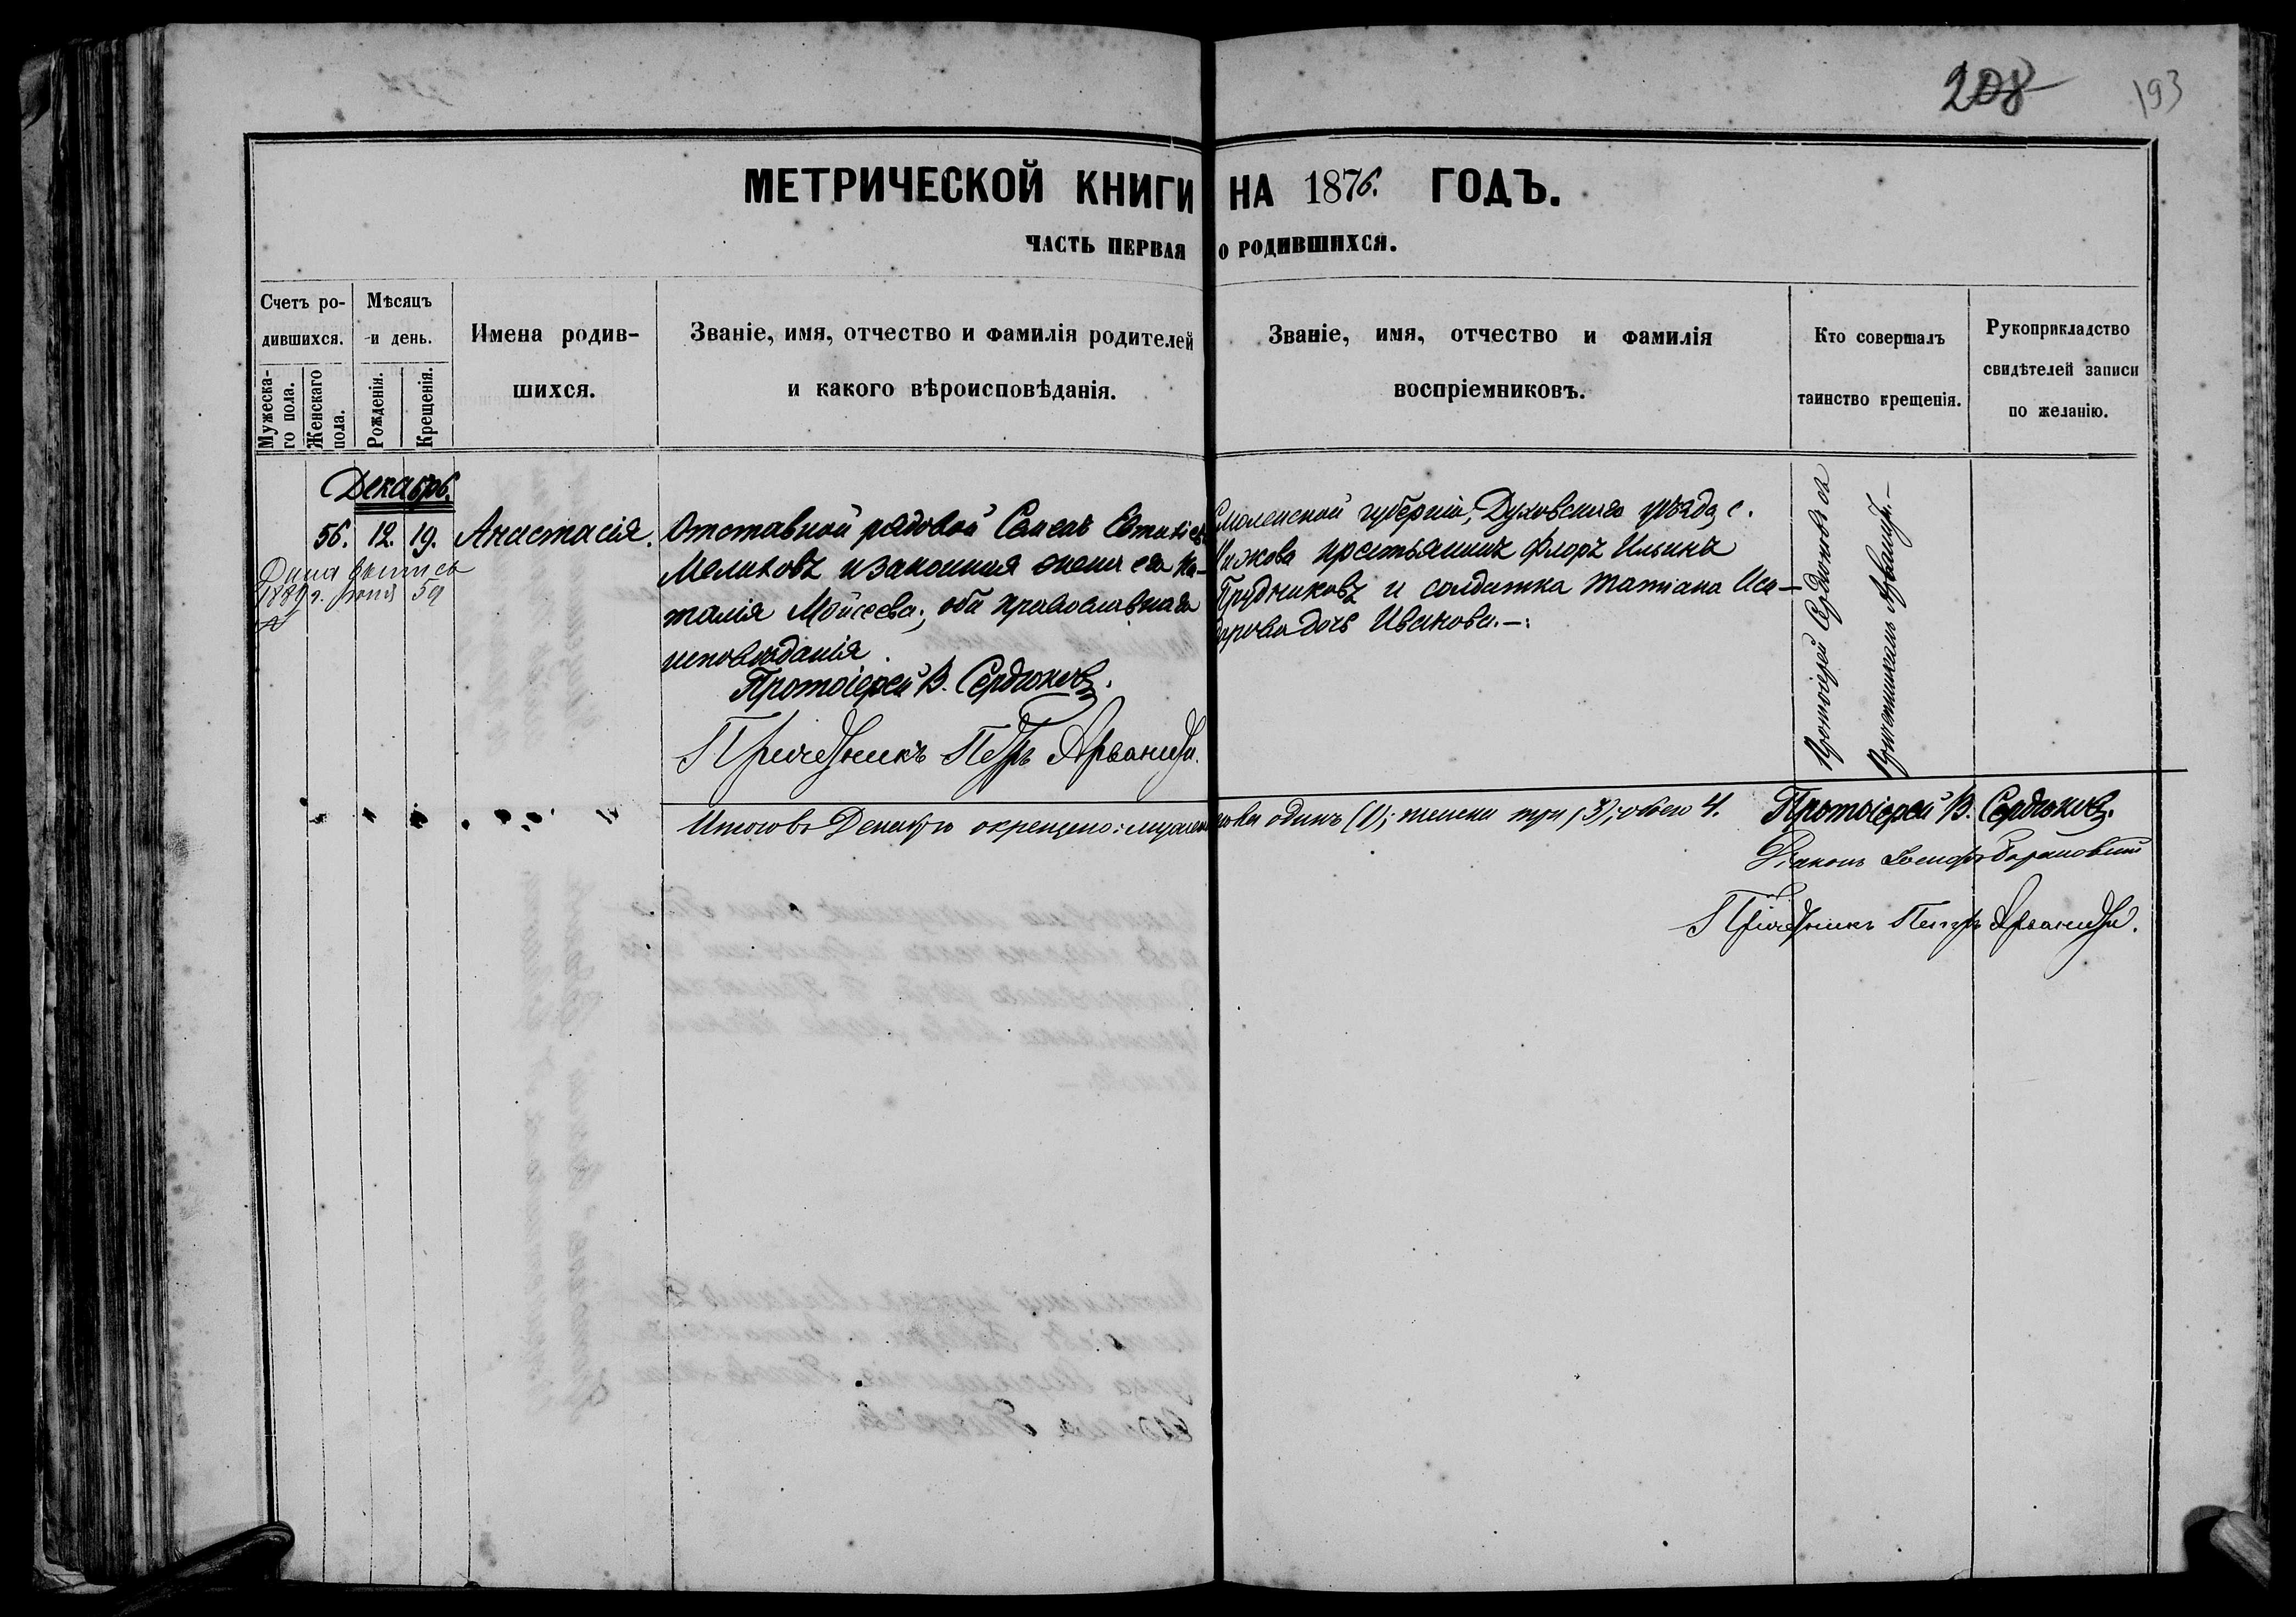 208
193
МЕТРИЧЕСКОЙ КНИГИ НА 1876. ГОДЪ.
ЧАСТЬ ПЕРВАЯ О РОДИВШИХСЯ.
Счетъ ро-
дившихся.
Мужеска-
го пола.
Женскаго
пола.
Мѣсяцъ
и день.
Рожденія.
Крещенія.
Имена родив-
шихся.
Званіе, имя, отчество и фамилія родителей
и какого вѣроисповѣданія.
Званіе, имя, отчество и фамилія
воспріемниковъ.
Кто совершалъ
таинство крещенія.
Рукоприкладство
свидѣтелей записи
по желанію.
Декабрь.
56. 12. 19. Анастасія.
1889 г.
59
Отставной рядовой Семенъ Евтихіевъ
Мелиховъ и законная жена его На-
талія Мойсеева; оба православнаго
исповѣданія.
Протоіерей В. Сердюковъ.
Причетникъ Петръ Арваниди.
Смоленской губерніи, Духовскаго уѣзда, с.
крестьянинъ Флоръ Ильинъ
Прудниковъ и солдатка Татіана Иси-
дорова дочь Иванова.–:
Протоіерей Сердюковъ съ
Причетникомъ Арваниди.–
Итого въ Декабрѣ окрещено: мужескова одинъ (1); женска три (3); обоего 4.
Протоіерей В. Сердюковъ.
Діаконъ Іосифъ Барановскій
Причетникъ Петръ Арваниди.